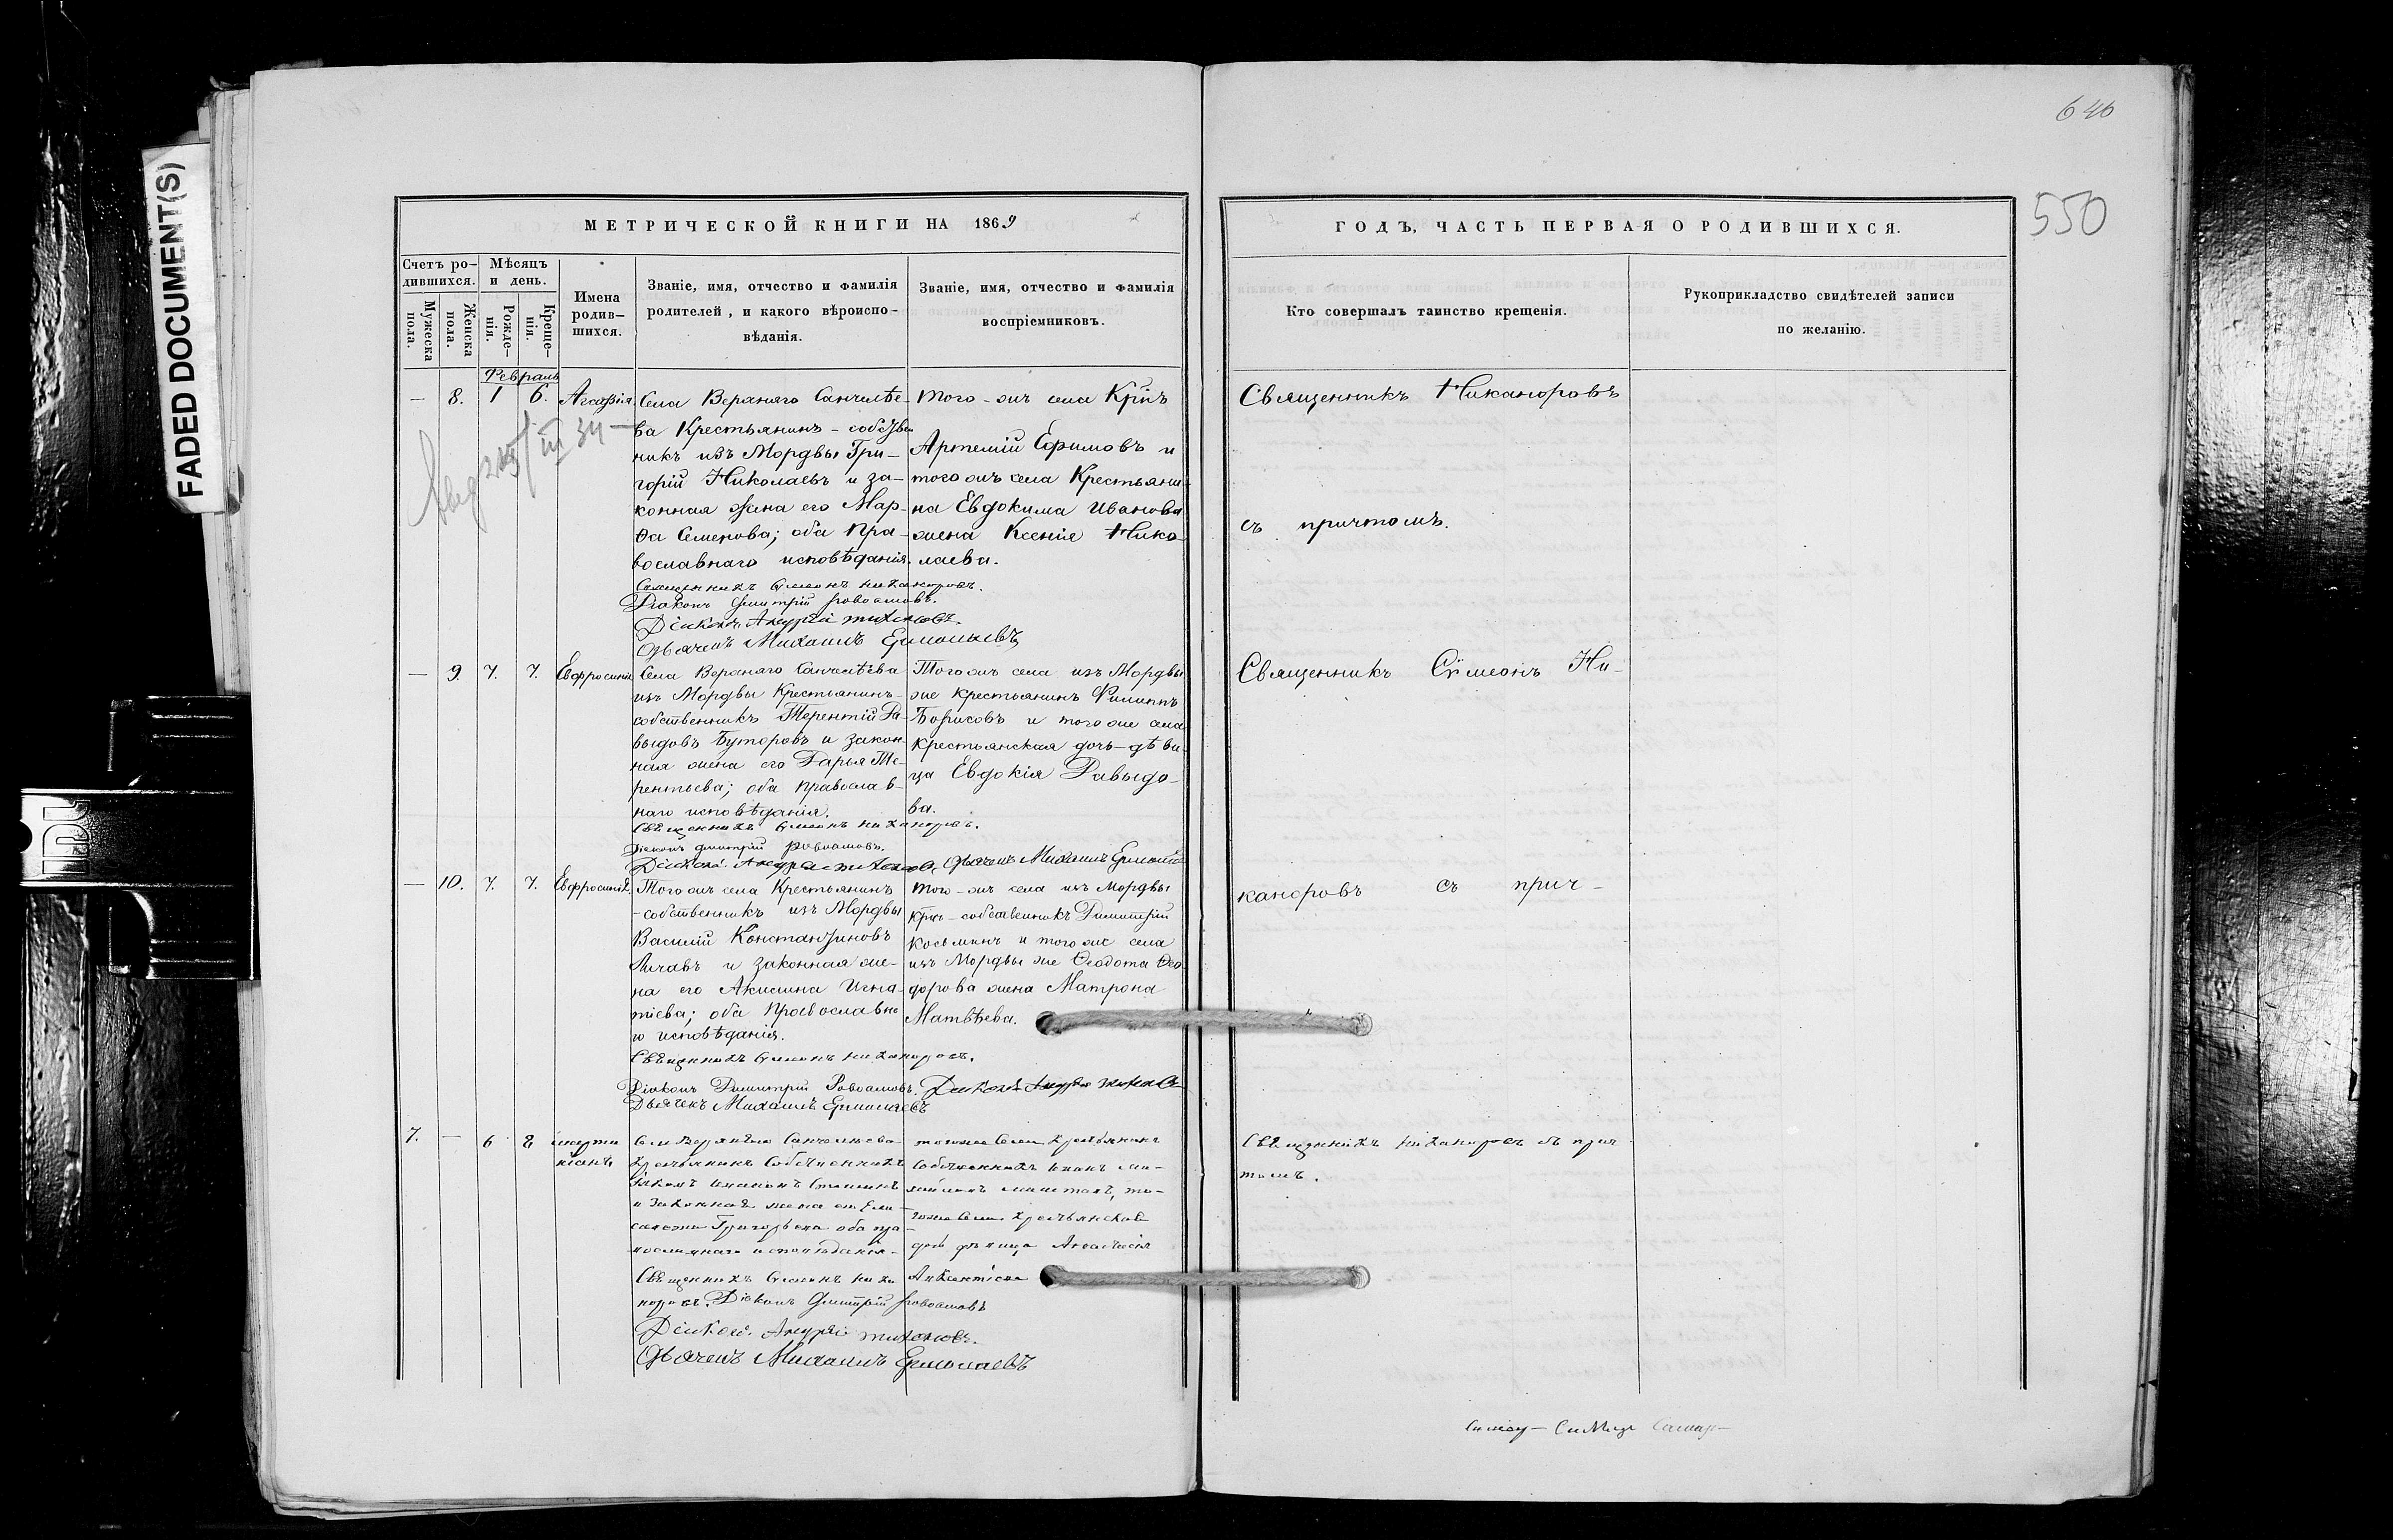 FADED DOCUMENT(S)
640
550
МЕТРИЧЕСКОЙ КНИГИ НА 1869
ГОДЪ, ЧАСТЬ ПЕРВАЯ О РОДИВШИХСЯ.
Счетъ ро-
дившихся.
Мужеска
пола.
Женска
пола.
Мѣсяцъ
и день.
Рожде-
нія.
Креще-
нія.
Имена
родив-
шихся.
Званіе, имя, отчество и фамилія
родителей, и какого вѣроиспо-
вѣданія.
Званіе, имя, отчество и фамилія
воспріемниковъ.
Кто совершалъ таинство крещенія.
Рукоприкладство свидѣтелей записи
по желанію.
Февраль
— 8. 1 6. Агафія.
Села Верхняго Санчелѣе-
ва Крестьянинъ-собствен
никъ изъ Мордвы Гри-
горій Николаевъ и за-
конная жена его Мар-
ѳа Семенова; оба Пра-
вославнаго исповѣданія.
Священникъ Симеонъ Никаноровъ.
Діаконъ Димитрій Ровоамовъ.
Діаконъ Андрей Тихоновъ.
Дьячекъ Михаилъ Ермолаевъ
Того-жъ села Кр͠нъ
Артемій Ефимовъ и
того жъ села Крестьяни-
на Евдокима Иванова
жена Ксенія Нико-
лаева.
Священникъ Никаноровъ
съ причтомъ.
— 9. 7. 7. Евфросинія
Села Верхняго Санчелѣева
изъ Мордвы Крестьянинъ-
собственникъ Терентій Да-
выдовъ Буторовъ и закон-
ная жена его Дарья Те-
рентьева; оба православ-
наго исповѣданія.
Священникъ Симеонъ Никаноровъ.
Діаконъ Димитрій Ровоамовъ.
Діаконъ Андрей Тихоновъ, Дьячекъ Михаилъ Ермолаевъ
Того жъ села изъ Мордвы
же крестьянинъ Филиппъ
Борисовъ и того же села
крестьянская дочь-дѣви-
ца Евдокія Давыдо-
ва.
Священникъ Сѵмеонъ Ни-
— 10. 7. 7. Евфросинія.
Того жъ села Крестьянинъ
-собственникъ изъ Мордвы
Василій Константиновъ
и законная же-
на его Акилина Игна-
тіева; оба Православна
го исповѣданія.
Священникъ Симеонъ Никаноровъ.
Діаконъ Димитрій Ровоамовъ. Діаконъ Андрей Тихоновъ
Дьячекъ Михаилъ Ермолаевъ
Того-жъ села изъ Мордвы
кр͠нъ-собственникъ Димитрій
Косьминъ и того же села
изъ Мордвы же Ѳеодота Ѳео-
дорова жена Матрона
Матвѣева.
каноровъ съ прич-
7. — 6 8
Села Верхняго Санчелѣева
крестьянинъ собственникъ
и законная жена его
Григорьева оба пра-
вославнаго исповѣданія-
Священникъ Симеонъ Ника
норовъ. Діаконъ Димитрій Ровоамовъ
Діаконъ Андрей Тихоновъ.
Дьячекъ Михаилъ Ермолаевъ
тогоже села крестьянинъ
собственникъ
тогоже села крестьянская
дочь дѣвица Анастасія
Священникъ Никаноровъ съ прич
томъ.